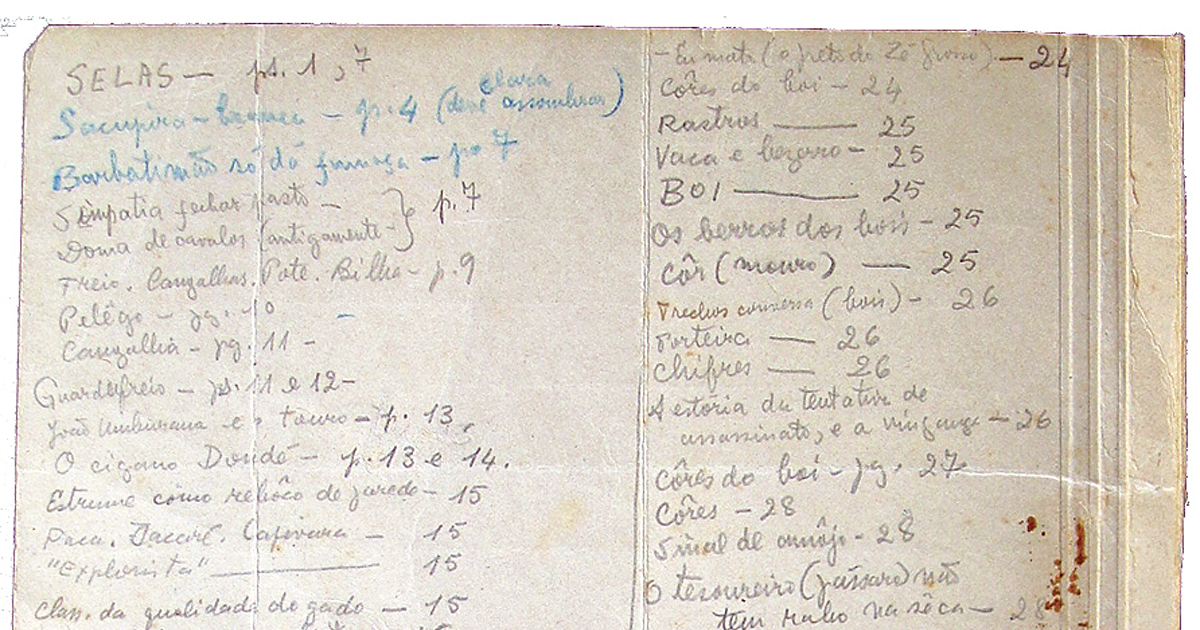 SELAS — ps. 1, 7
Sucupira-branca — p. 4 (deve assombrar)
clara
Barbatimão só dá fumaça — p. 7
Simpatia fechar pasto —
Doma de cavalos (antigamente - } p. 7
Freio. Cangalhas. Pote. Bilha - p. 9
Pelêgo — pg. 10
Cangalha - pg. 11 -
Guardafreio — ps. 11 e 12 -
João Umburana e o touro — p. 13,
O cigano Dondé — p. 13 e 14.
Estrume como rebôco de parede - 15
Paca. Jacaré. Capivara — 15
"Explorista" ——— 15
Class. da qualidade do gado — 15
- Eu mato (o preto do Zé Grosso) — 24
Côres do boi — 24
Rastros ——— 25
Vaca e bezerro - 25
BOI ——— 25
Os berros dos bois - 25
Côr (mouro) — 25
Trechos conversa (bois) - 26
Porteira — 26
Chifres — 26
A estória da tentativa de
assassinato, e a vingança - 26
Côres do boi - pg. 27
Côres - 28
Sinal de amôjo - 28
O tesoureiro (pássaro) não
tem rabo na sêca — 28